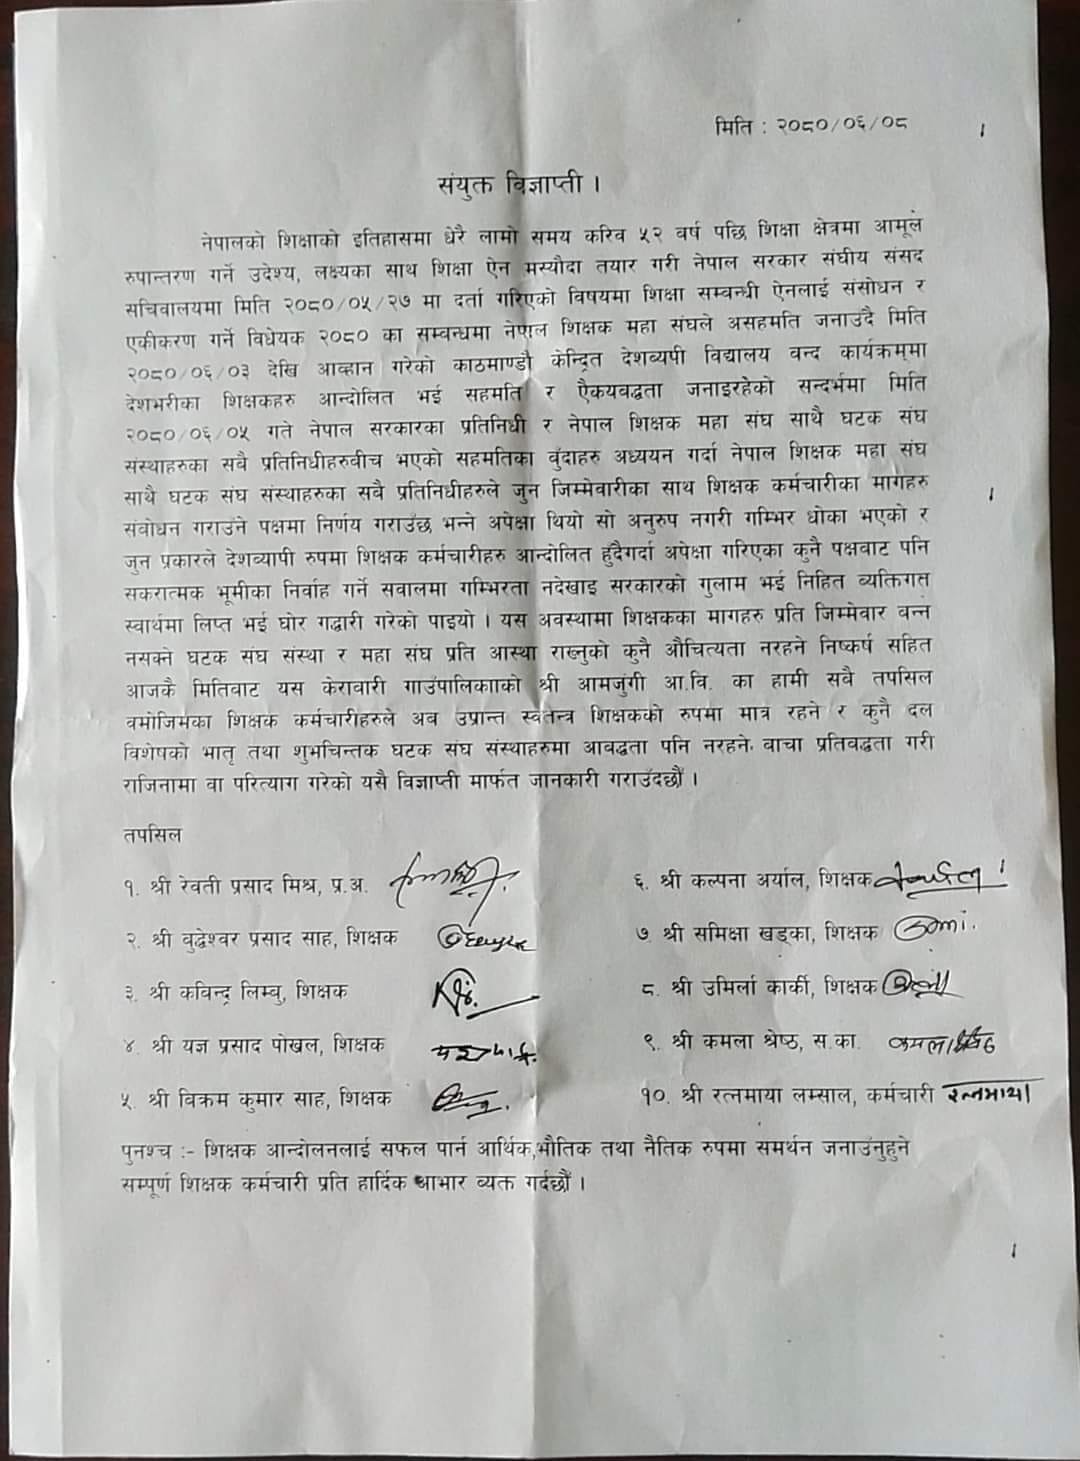 मिति : २०८०/०६/०८
संयुक्त विज्ञाप्ती ।
नेपालको शिक्षाको इतिहासमा धेरै लामो समय करिव ५२ वर्ष पछि शिक्षा क्षेत्रमा आमूल
रुपान्तरण गर्ने उदेश्य, लक्ष्यका साथ शिक्षा ऐन मस्यौदा तयार गरी नेपाल सरकार संघीय संसद
सचिवालयमा मिति २०८०/०५/२७ मा दर्ता गरिएको विषयमा शिक्षा सम्बन्धी ऐनलाई संसोधन र
एकीकरण गर्ने विधेयक २०८० का सम्बन्धमा नेपाल शिक्षक महा संघले असहमति जनाउदै मिति
२०८०/०६/०३ देखि आव्हान गरेको काठमाण्डौ केन्द्रित देशब्यपी विद्यालय वन्द कार्यक्रममा
देशभरीका शिक्षकहरु आन्दोलित भई सहमति र ऐकयवद्धता जनाइरहेको सन्दर्भमा मिति
२०८०/०६/०५ गते नेपाल सरकारका प्रतिनिधी र नेपाल शिक्षक महा संघ साथै घटक संघ
संस्थाहरुका सबै प्रतिनिधीहरुवीच भएको सहमतिका वुँदाहरु अध्ययन गर्दा नेपाल शिक्षक महा संघ
साथै घटक संघ संस्थाहरुका सबै प्रतिनिधीहरुले जुन जिम्मेवारीका साथ शिक्षक कर्मचारीका मागहरु
संवोधन गराउने पक्षमा निर्णय गराउँछ भन्ने अपेक्षा थियो सो अनुरुप नगरी गम्भिर धोका भएको र
जुन प्रकारले देशव्यापी रुपमा शिक्षक कर्मचारीहरु आन्दोलित हुँदैगर्दा अपेक्षा गरिएका कुनै पक्षवाट पनि
सकरात्मक भूमीका निर्वाह गर्ने सवालमा गम्भिरता नदेखाइ सरकारको गुलाम भई निहित व्यक्तिगत
स्वार्थमा लिप्त भई घोर गद्धारी गरेको पाइयो । यस अवस्थामा शिक्षकका मागहरु प्रति जिम्मेवार वन्न
नसक्ने घटक संघ संस्था र महा संघ प्रति आस्था राख्नुको कुनै औचित्यता नरहने निष्कर्ष सहित
आजकै मितिवाट यस केरावारी गाउँपालिकााको श्री आमजुंगी आ.वि. का हामी सबै तपसिल
वमोजिमका शिक्षक कर्मचारीहरुले अब उप्रान्त स्वतन्त्र शिक्षकको रुपमा मात्र रहने र कुनै दल
विशेषको भातृ तथा शुभचिन्तक घटक संघ संस्थाहरुमा आवद्धता पनि नरहने वाचा प्रतिवद्धता गरी
राजिनामा वा परित्याग गरेको यसै विज्ञाप्ती मार्फत जानकारी गराउँदछौँ ।
तपसिल
१. श्री रेवती प्रसाद मिश्र, प्र.अ.
२. श्री वुद्धेश्वर प्रसाद साह, शिक्षक
३. श्री कविन्द्र लिम्बु, शिक्षक
४. श्री यज्ञ प्रसाद पोखेल, शिक्षक
५. श्री विक्रम कुमार साह, शिक्षक
६. श्री कल्पना अर्याल, शिक्षक
७. श्री समिक्षा खड्का, शिक्षक
८. श्री उमिर्ला कार्की, शिक्षक
९. श्री कमला श्रेष्ठ, स.का. कमला श्रेष्ठ
१०. श्री रत्नमाया लम्साल, कर्मचारी रत्नमाया
पुनश्च :- शिक्षक आन्दोलनलाई सफल पार्न आर्थिक,भौतिक तथा नैतिक रुपमा समर्थन जनाउँनुहुने
सम्पूर्ण शिक्षक कर्मचारी प्रति हार्दिक आभार व्यक्त गर्दछौँ ।